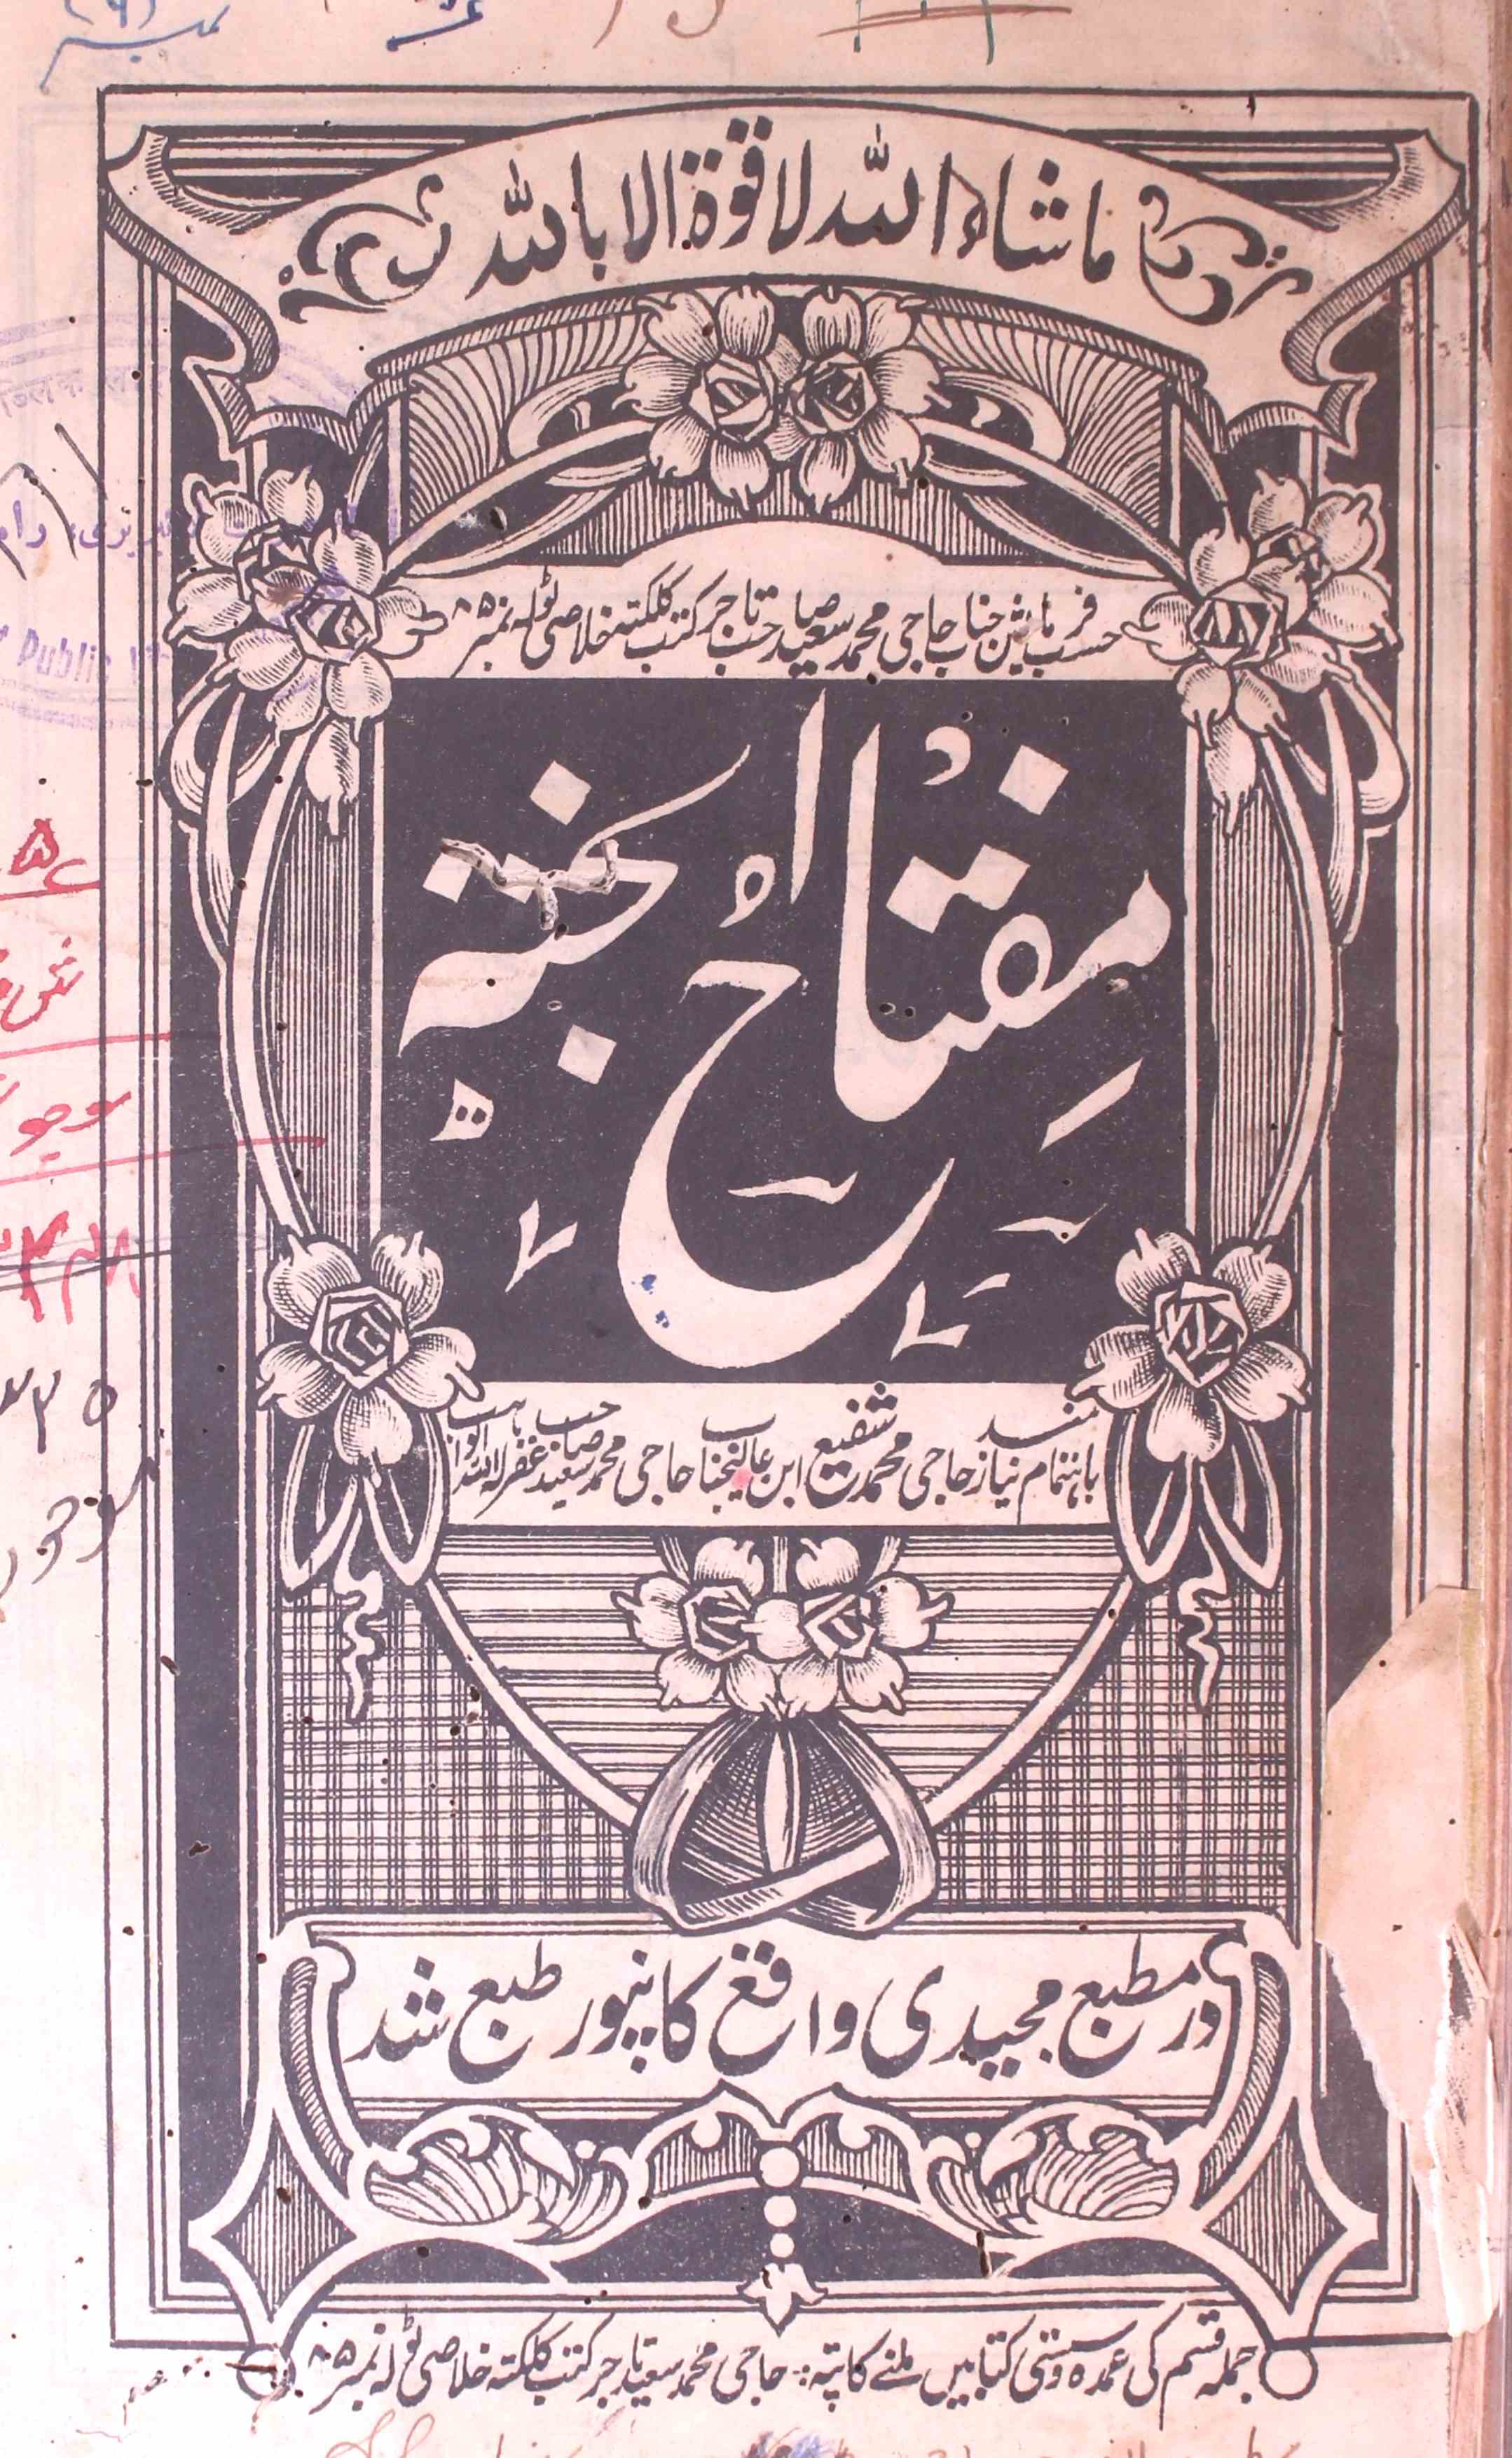 ماشاء اللہ لا قوة الا باللہ
حسب فرمایش جناب حاجی محمد سعید صاحب تاجر کتب کلکتہ خلاصی ٹولہ نمبر ۸۵
مِفتاحُ الجنۃ
باہتمام نیازمند حاجی محمد شفیع ابن عالیجناب حاجی محمد سعید صاحب غفر لہ اللہ الواہب
در مطبع مجیدی واقع کانپور طبع شد
جملہ قسم کی عمدہ وسستی کتابیں ملنے کا پتہ: حاجی محمد سعید تاجر کتب کلکتہ خلاصی ٹولہ نمبر ۸۵
Public